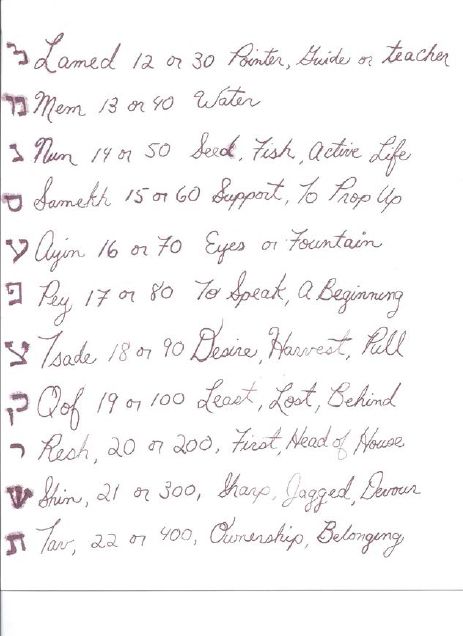 ל Lamed 12 or 30 Pointer, Guide or teacher
מ Mem 13 or 40 Water
נ Nun 14 or 50 Seed, Fish, Active Life
ס Samekh 15 or 60 Support, To Prop Up
ע Ayin 16 or 70 Eyes or Fountain
פ Pey 17 or 80 To Speak, A Beginning
צ Tsade 18 or 90 Desire, Harvest, Pull
ק Qof 19 or 100 Least, Lost, Behind
ר Resh, 20 or 200, First, Head of House
ש Shin, 21 or 300, Sharp, Jagged, Devour
ת Tav, 22 or 400, Ownership, Belonging